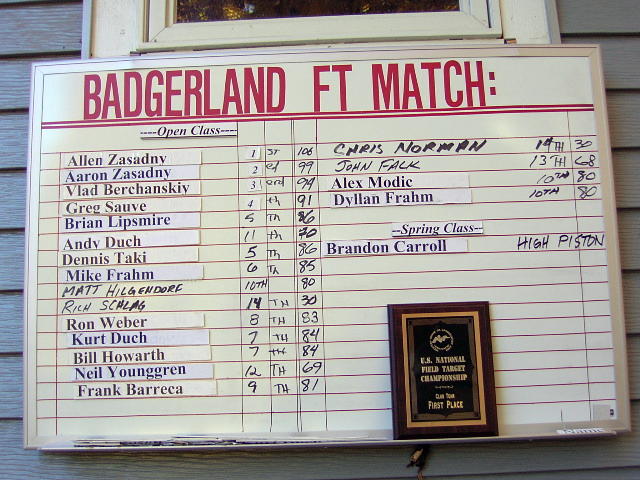 BADGERLAND FT MATCH:
----Open Class----
Allen Zasadny 1 ST 106
Aaron Zasadny 2 nd 99
Vlad Berchanskiy 3 erd 94
Greg Sauve 4 th 91
Brian Lipsmire 5 th 86
Andy Duch 11 th 70
Dennis Taki 5 Th 86
Mike Frahm 6 Th 85
MATT HILGENDORF 10TH 80
RICH SCHLAG 14 TH 30
Ron Weber 8 TH 83
Kurt Duch 7 TH 84
Bill Howarth 7 TH 84
Neil Younggren 12 TH 69
Frank Barreca 9 TH 81
CHRIS NORMAN 14TH 30
JOHN FALK 13TH 68
Alex Modic 10TH 80
Dyllan Frahm 10TH 80
--Spring Class--
Brandon Carroll HIGH PISTON
U.S. NATIONAL
FIELD TARGET
CHAMPIONSHIP
CLUB TEAM
FIRST PLACE